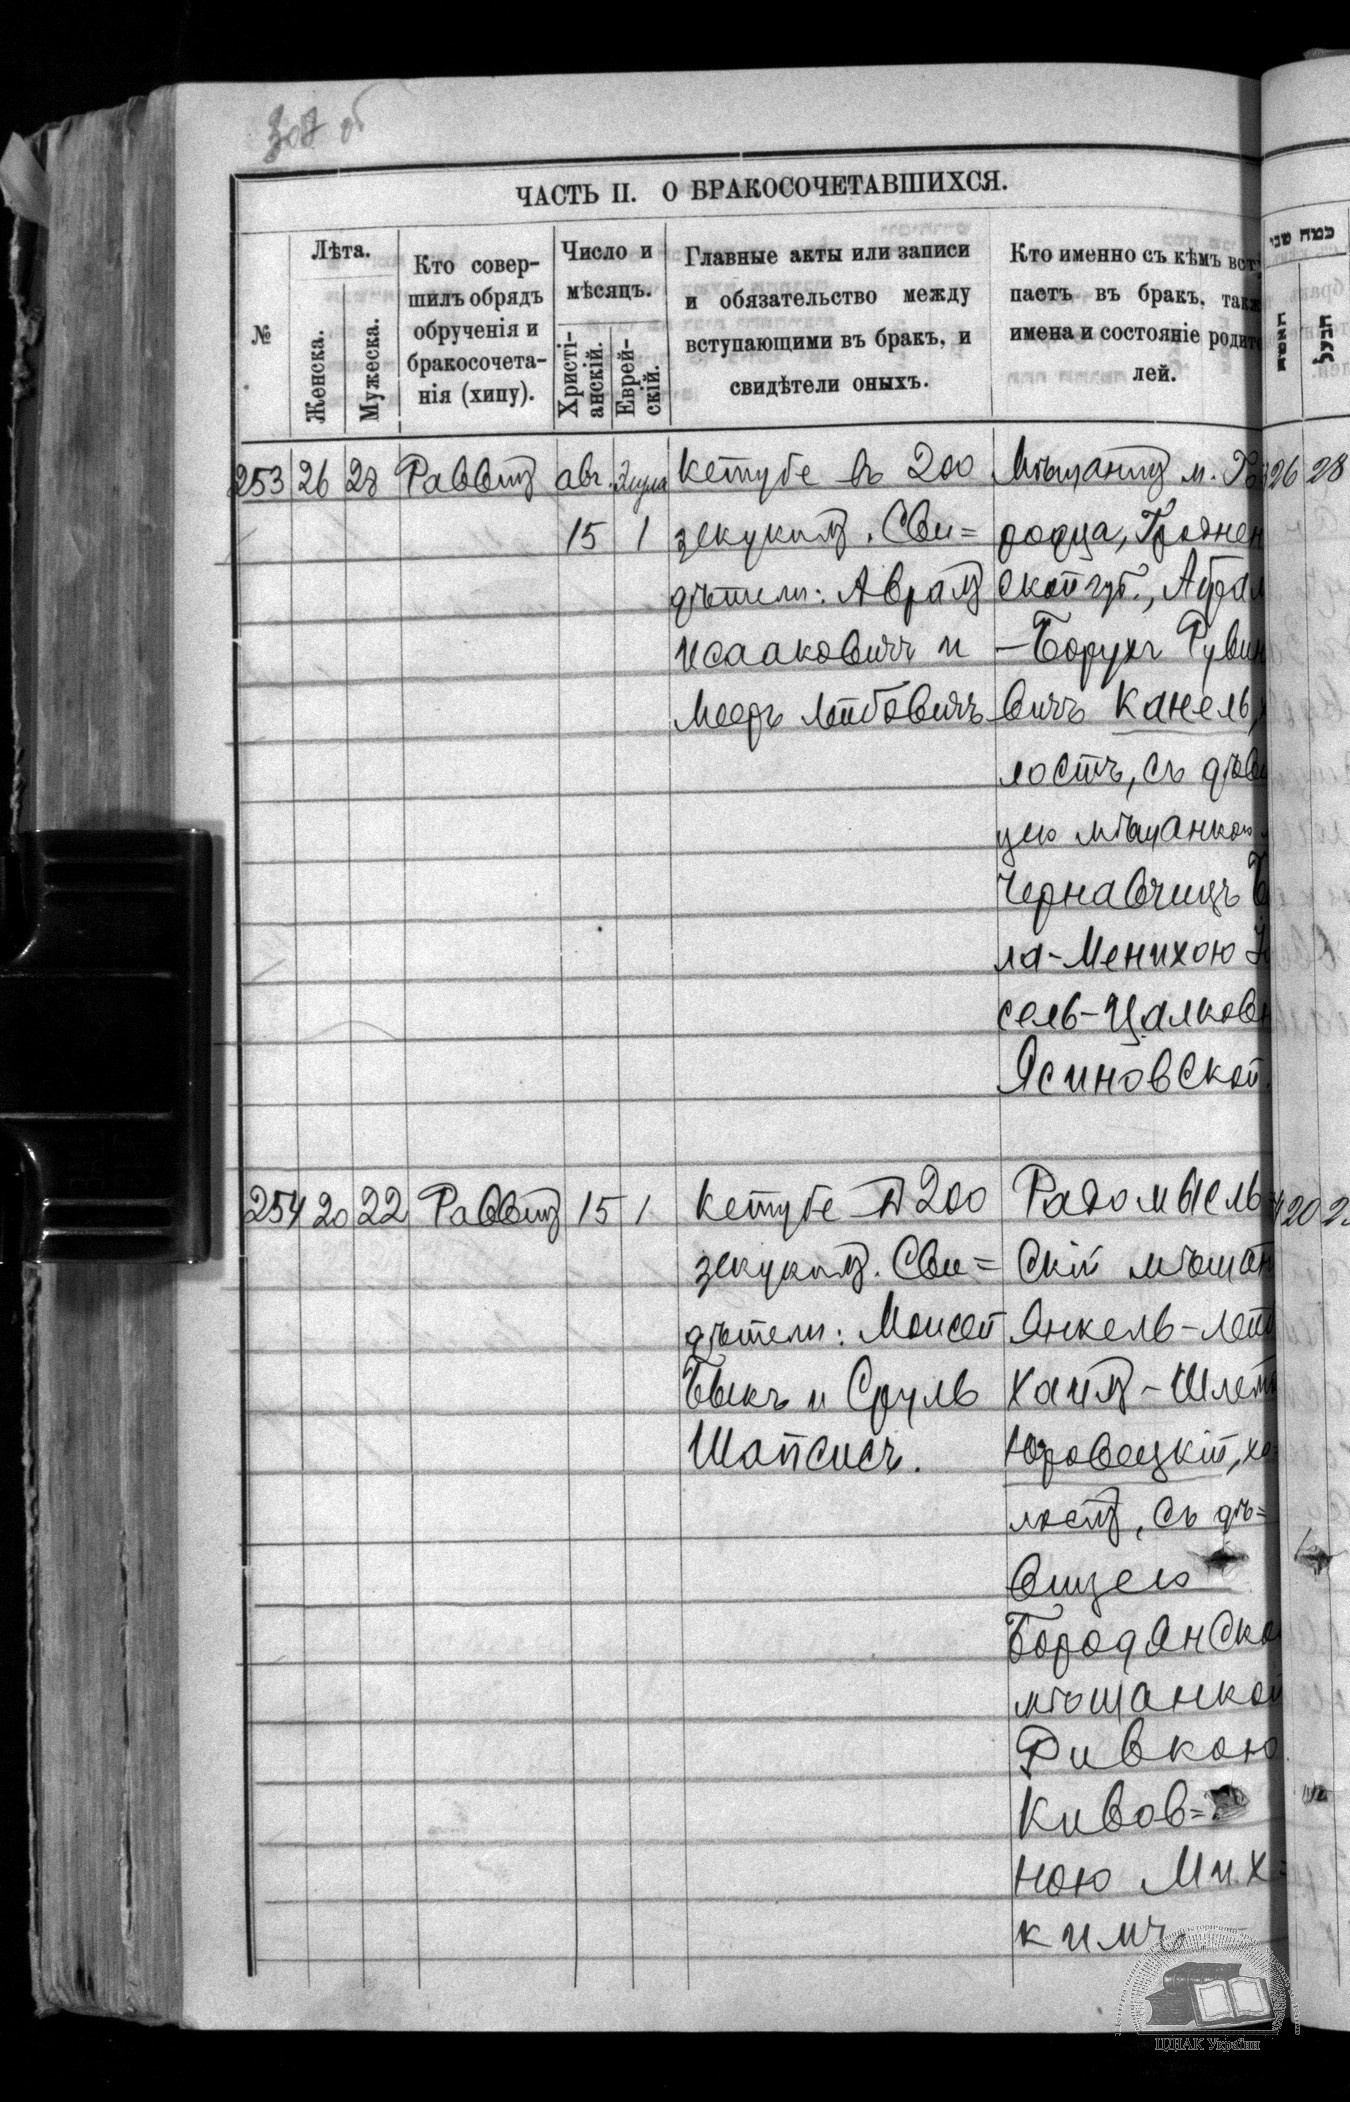 307 об
ЧАСТЬ II. О БРАКОСОЧЕТАВШИХСЯ.
№
Лѣта.
Женска.
Мужеска.
Кто совер-
шилъ обрядъ
обрученія и
бракосочета-
нія (хипу).
Число и
мѣсяцъ.
Христі-
анскій.
Еврей-
скій.
Главные акты или записи
и обязательство между
вступающими въ бракъ, и
свидѣтели оныхъ.
Кто именно съ кѣмъ всту
паетъ въ бракъ, такж
имена и состояніе родите
лей.
כמה שני
253 26 28 Раввинъ авг. Элула
15 1
Кетубе въ 200
зекукимъ. Сви=
дѣтели: Аврамъ
Исааковичъ и
Мееръ Лейбовичъ
Мѣщанинъ м.
родца, Гроднен
ской губ., Абрам
-Борухъ Рувин
вичъ Канель, х
лостъ, съ дѣви
цею мѣщанкою
Чернавчицъ
ла-Менихою
сель-Цалковн
Ясиновской.
26 28
254 20 22 Раввинъ 15 1
Кетубе въ 200
зекукимъ. Сви=
дѣтели: Моисей
Быкъ и Сруль
Шапсисъ.
Радомысль
скій мѣщан
Янкель-Лейб
Хаимъ-Шлема
Юровецкій, хо
лостъ, съ дѣ=
вицею
Бородянско
мѣщанкой
Ривкою
Кивов=
ною Мих=
кимъ.
20 2
ЦДІАК України